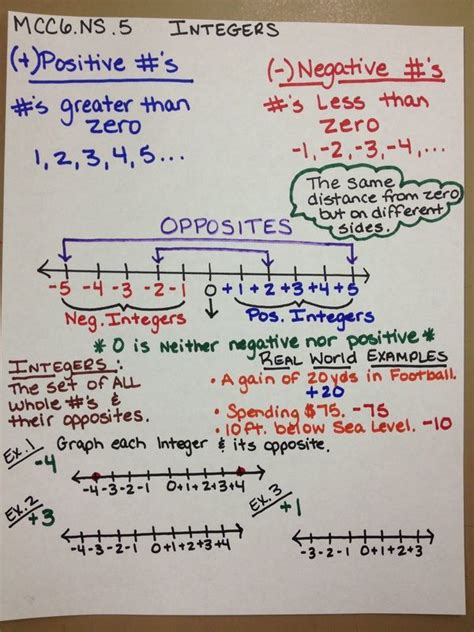 MCC6.NS.5 INTEGERS
(+)Positive #'s
#'s greater than
zero
1, 2, 3, 4, 5...
(-)Negative #'s
#'s Less than
zero
-1, -2, -3, -4, ...
The same
distance from zero
but on different
sides.
OPPOSITES
-5 -4 -3 -2 -1 0 +1 +2 +3 +4 +5
Neg. Integers Pos. Integers
* 0 is Neither negative nor positive *
INTEGERS:
The set of ALL
whole #'s &
their opposites.
REAL WORLD EXAMPLES
• A gain of 20yds in Football.
+20
• Spending $75. -75
• 10ft. below Sea Level. -10
Ex. 1 Graph each Integer & its opposite.
-4
-4 -3 -2 -1 0 +1 +2 +3 +4
Ex. 2
+3
-4 -3 -2 -1 0 +1 +2 +3 +4
Ex. 3
+1
-3 -2 -1 0 +1 +2 +3